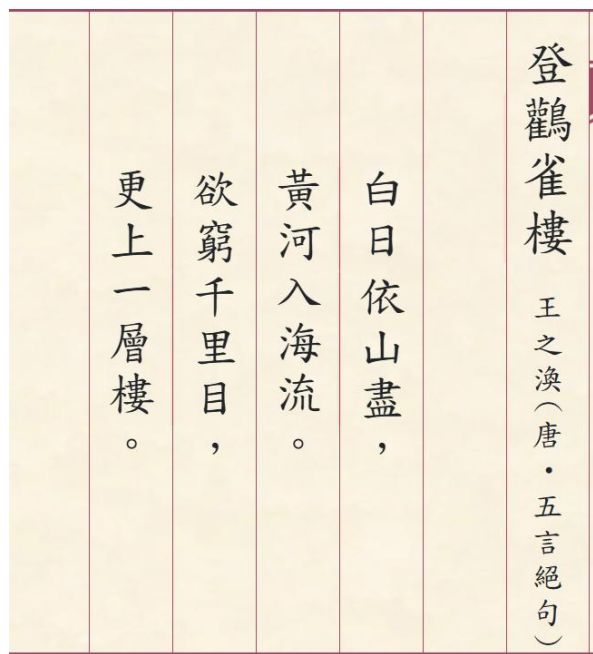 登鸛雀樓 王之渙(唐・五言絕句)
白日依山盡,
黃河入海流。
欲窮千里目,
更上一層樓。